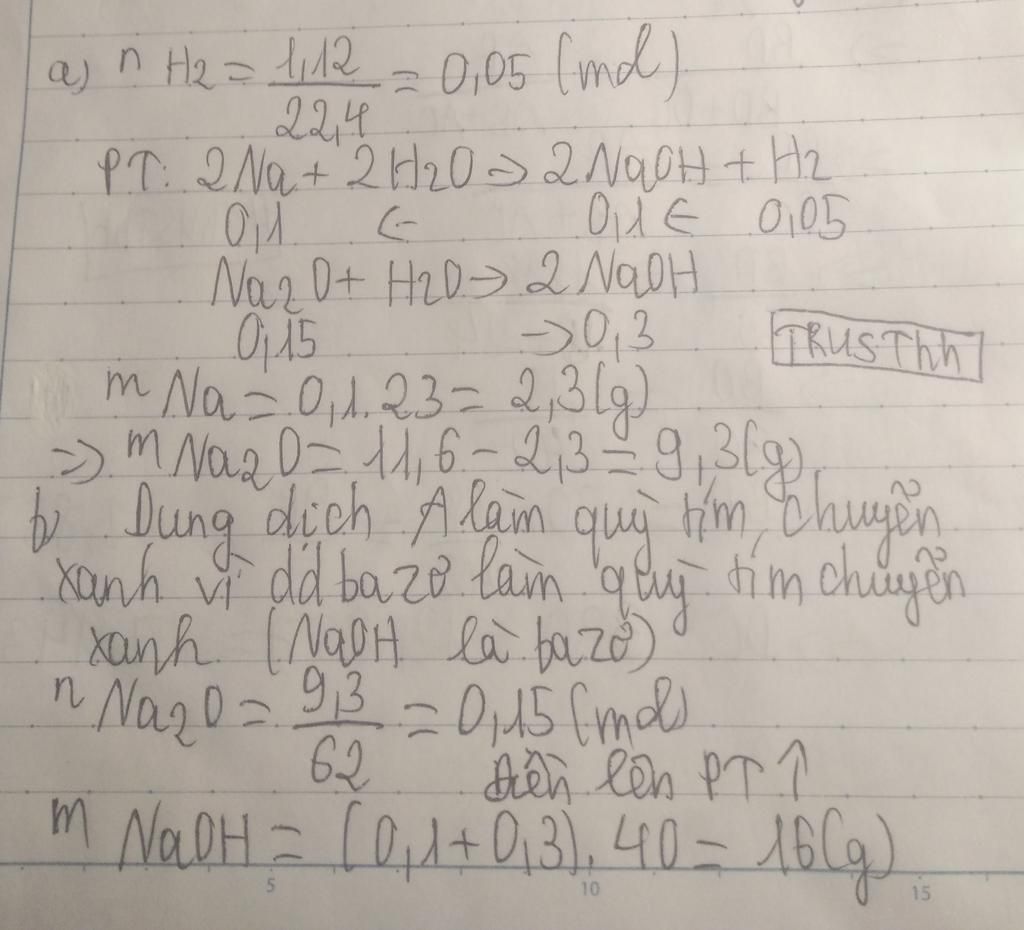 a) n H2 = 1,12 / 22,4 = 0,05 (mol)
PT: 2Na + 2H2O → 2NaOH + H2
0,1 ← 0,1 ← 0,05
Na2O + H2O → 2NaOH
0,15 → 0,3
TRUSThh
m Na = 0,1.23 = 2,3(g)
=> m Na2O = 11,6 - 2,3 = 9,3(g)
b) Dung dịch A làm quỳ tím chuyển
xanh vì dd bazơ làm quỳ tím chuyển
xanh (NaOH là bazơ)
n Na2O = 9,3 / 62 = 0,15 (mol)
Điền lên PT ↑
m NaOH = (0,1+0,3).40 = 16(g)
5 10 15